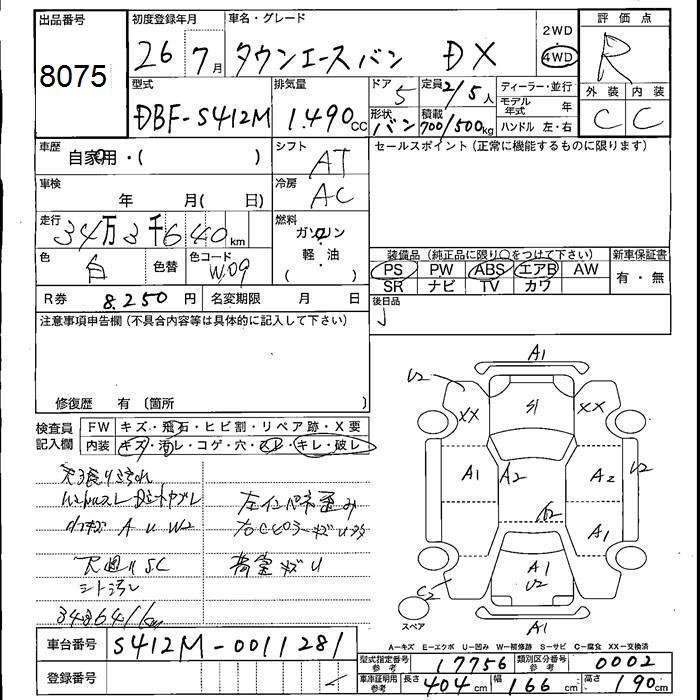 出品番号 初度登録年月 車名・グレード 評価点
8075 26 7月 タウンエースバン DX 2WD 4WD R
型式 排気量 ドア 5 定員 2/5人 ディーラー・並行 外装 内装
DBF-S412M 1.490cc 形状 バン 積載 700/500kg モデル年式 年 C C
ハンドル 左・右
車歴 自家用・( ) シフト AT セールスポイント(正常に機能するものに限ります)
車検 年 月( 日) 冷房 AC
走行 34万3千640km 燃料 ガソリン 軽・油 ( )
色 白 色替 色コード W09 装備品(純正品に限り○をつけて下さい) 新車保証書
PS PW ABS エアB AW 有・無
SR ナビ TV カワ
R券 8.250円 名変期限 月 日 後日品
注意事項申告欄(不具合内容等は具体的に記入して下さい)
修復歴 有(箇所 )
検査員記入欄 FW キズ・飛石・ヒビ割・リペア跡・X要
内装 キズ・汚レ・コゲ・穴・スレ・キレ・破レ
A U W2
下廻りSC
シート汚レ
343641km
左インパネ歪み
荷室キズU
A1
U2
XX S1 XX
A1 A2 A2 U2
A1
A1
U2
C2
スペア A1
A-キズ E-エクボ U-凹み W-補修跡 S-サビ C-腐食 XX-交換済
車台番号 S412M-0011281 型式指定番号 参考 17756 類別区分番号 参考 0002
登録番号 車庫証明用 参考 長さ 404cm 幅 166cm 高さ 190cm